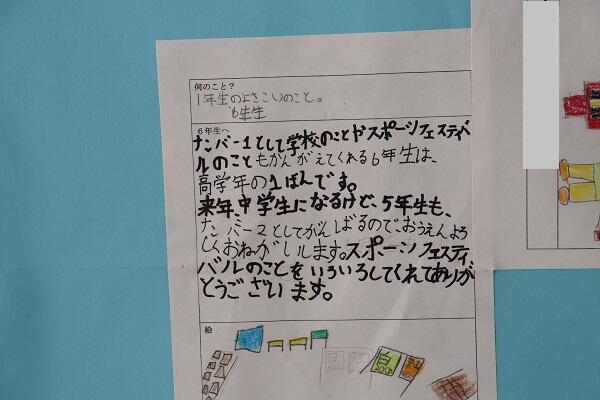 何のこと？
1年生のよさこいのこと。
6年生
6年生へ
ナンバー1として学校のことやスポーツフェスティバ
ルのこともかんがえてくれる6年生は、
高学年の1ばんです。
来年、中学生になるけど、5年生も、
ナンバー2としてがんばるのでおうえんよろ
しくおねがいします。スポーツフェスティ
バルのことをいろいろしてくれてありが
とうございます。
絵
白
紅